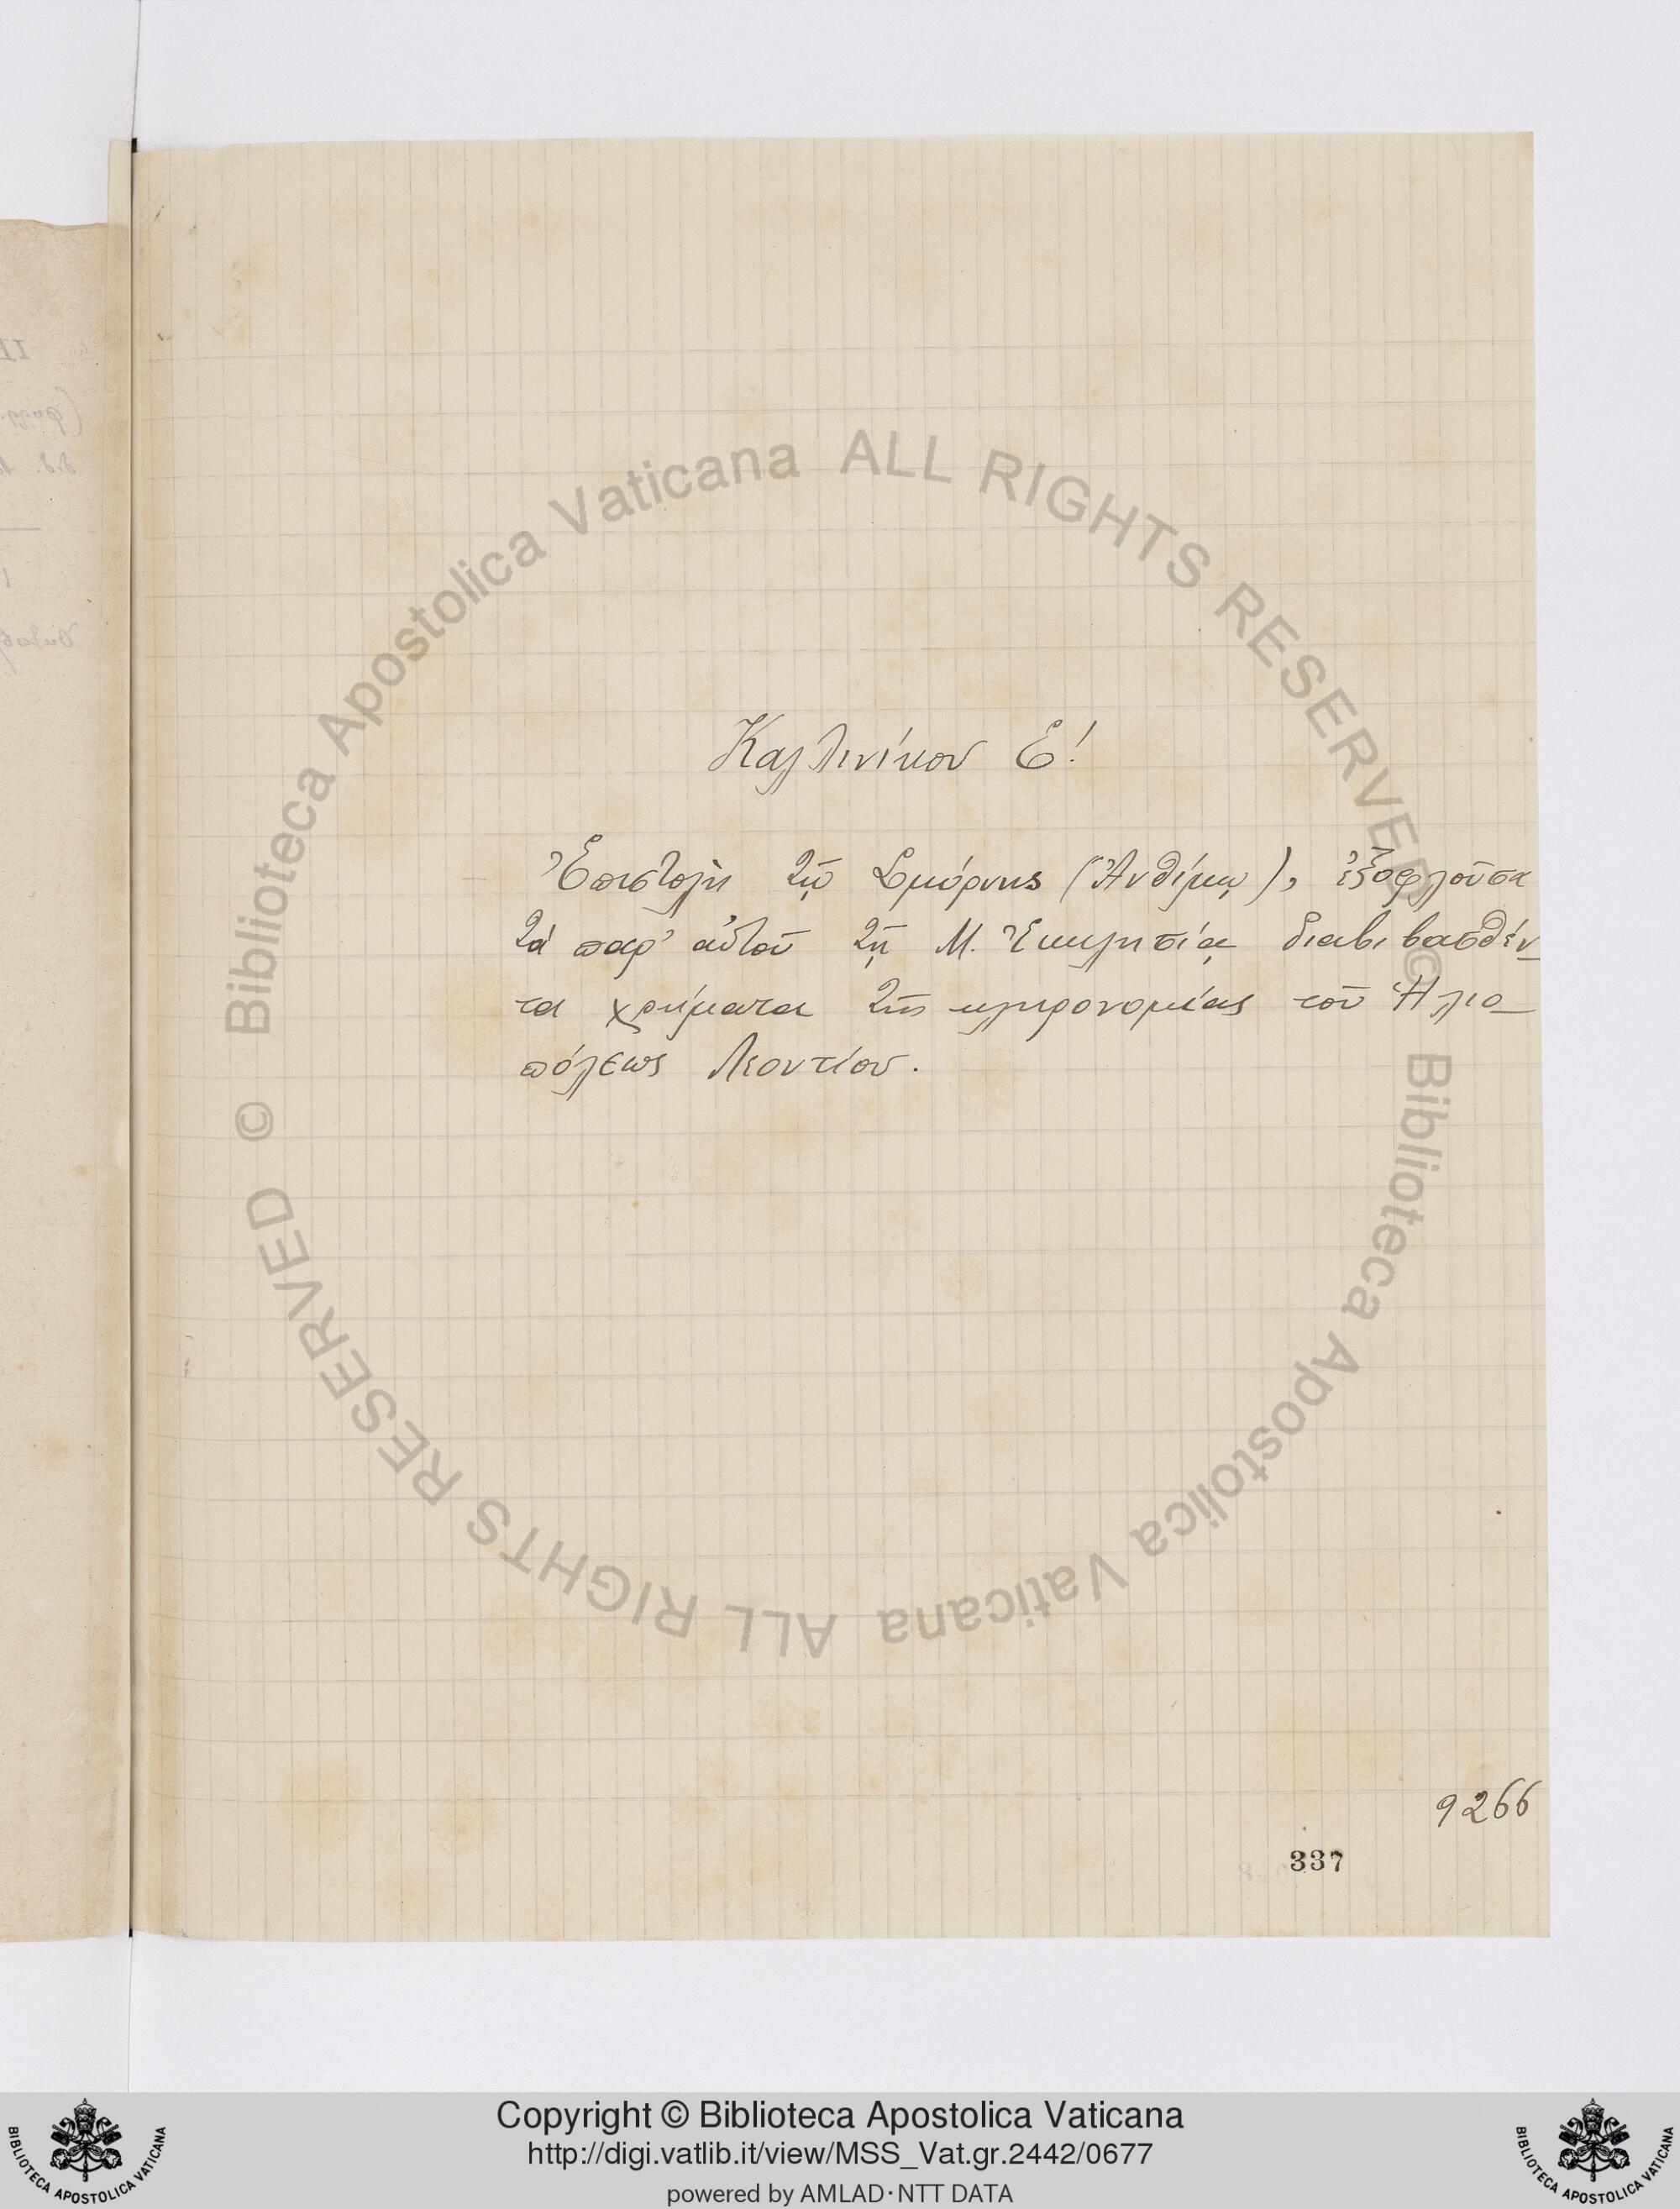 Καλλινίκου Ε΄
Ἐπιστολὴ τῷ Σμύρνης (Ἀνθίμῳ), ἐξοφλοῦσα
τὰ παρ' αὐτοῦ τῇ Μ. Ἐκκλησίᾳ διαβιβασθέν-
τα χρήματα τῆς κληρονομίας τοῦ Ἡλιο-
πόλεως Λεοντίου.
9266
337
Biblioteca Apostolica Vaticana ALL RIGHTS RESERVED ©
Biblioteca Apostolica Vaticana ALL RIGHTS RESERVED ©
Copyright © Biblioteca Apostolica Vaticana
http://digi.vatlib.it/view/MSS_Vat.gr.2442/0677
powered by AMLAD·NTT DATA
BIBLIOTECA APOSTOLICA VATICANA
BIBLIOTECA APOSTOLICA VATICANA